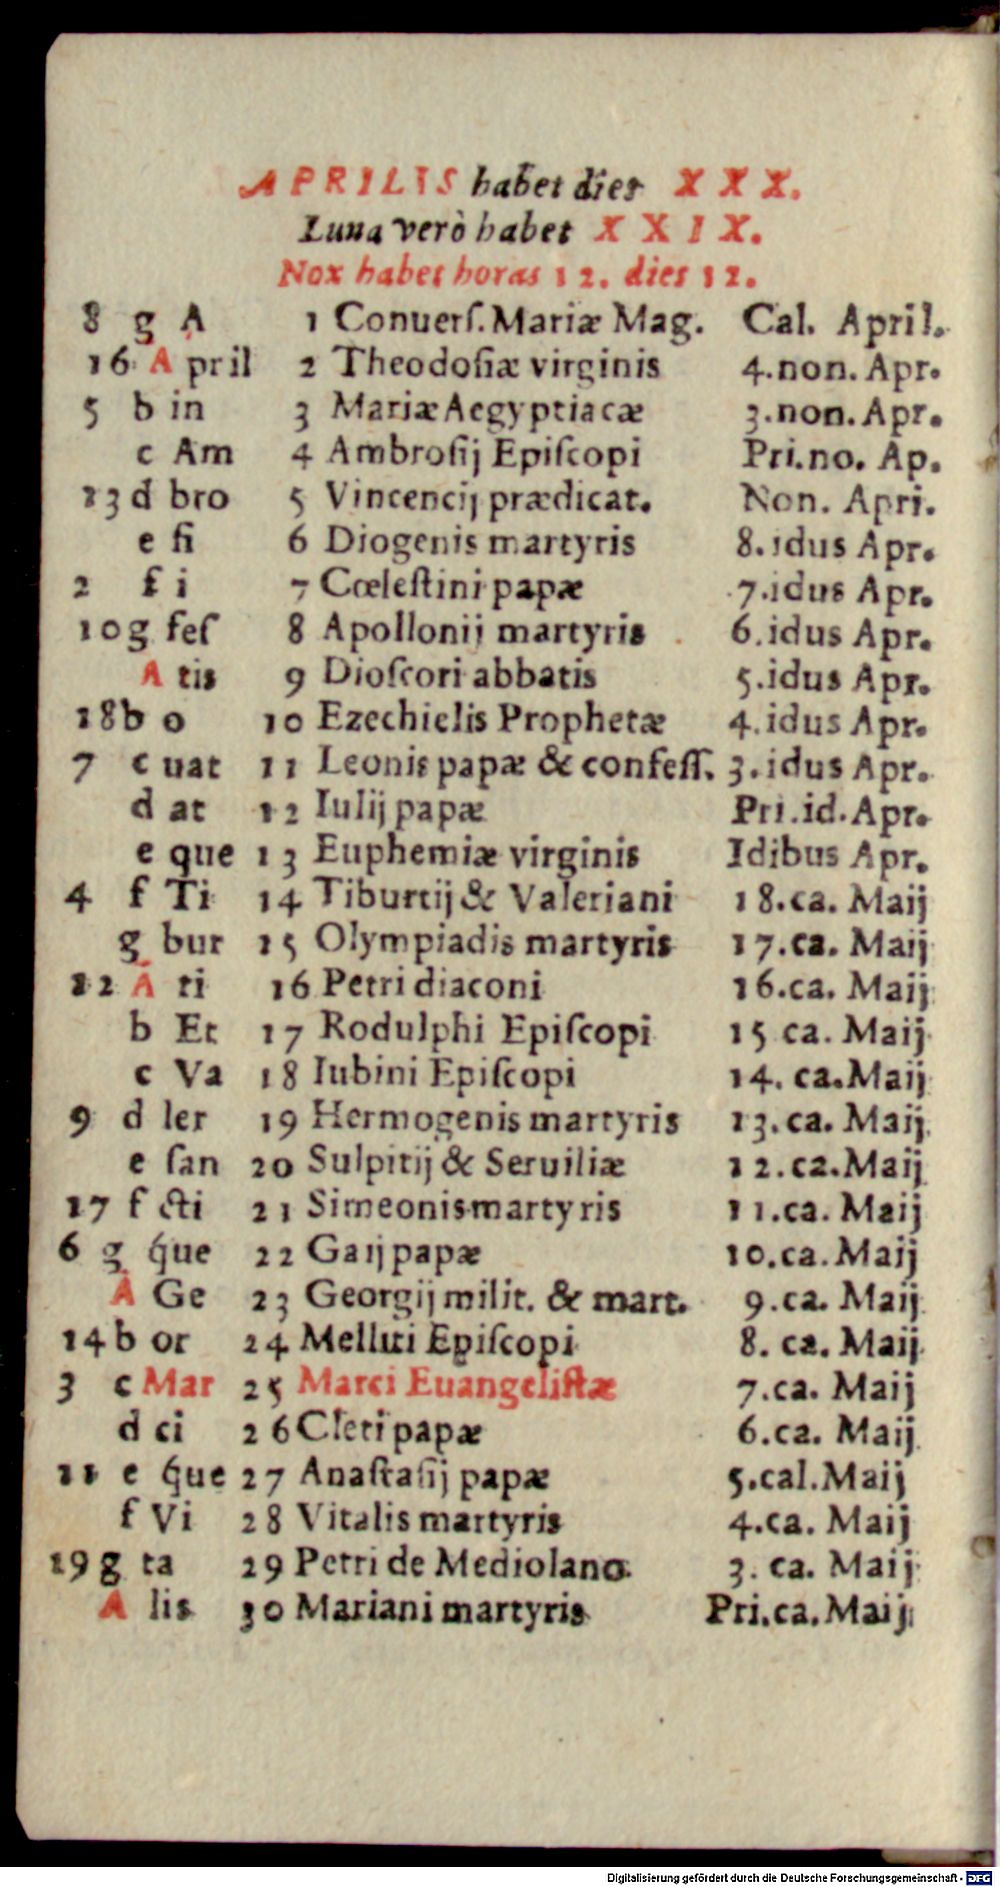 APRILIS habet dies XXX.
Luna verò habet XXIX.
Nox habet horas 12. dies 12.
8 g A 1 Conuerſ. Mariæ Mag. Cal. April.
16 A pril 2 Theodoſiæ virginis 4.non. Apr.
5 b in 3 Mariæ Aegyptiacæ 3.non. Apr.
c Am 4 Ambroſij Epiſcopi Pri.no. Ap.
13 d bro 5 Vincencij prædicat. Non. Apri.
e ſi 6 Diogenis martyris 8.idus Apr.
2 f i 7 Cœleſtini papæ 7.idus Apr.
10 g feſ 8 Apollonij martyris 6.idus Apr.
A tis 9 Dioſcori abbatis 5.idus Apr.
18 b o 10 Ezechielis Prophetæ 4.idus Apr.
7 c uat 11 Leonis papæ & confeſſ. 3.idus Apr.
d at 12 Iulij papæ Pri.id.Apr.
e que 13 Euphemiæ virginis Idibus Apr.
4 f Ti 14 Tiburtij & Valeriani 18.ca. Maij
g bur 15 Olympiadis martyris 17.ca. Maij
12 A ti 16 Petri diaconi 16.ca. Maij
b Et 17 Rodulphi Epiſcopi 15 ca. Maij
c Va 18 Iubini Epiſcopi 14. ca.Maij
9 d ler 19 Hermogenis martyris 13.ca. Maij
e ſan 20 Sulpitij & Seruiliæ 12.ca.Maij
17 f cti 21 Simeonis martyris 11.ca. Maij
6 g q́ue 22 Gaij papæ 10.ca.Maij
A Ge 23 Georgij milit. & mart. 9.ca. Maij
14 b or 24 Melliti Epiſcopi 8. ca. Maij
3 c Mar 25 Marci Euangeliſtæ 7.ca. Maij
d ci 26 Cleti papæ 6.ca. Maij
11 e q́ue 27 Anaſtaſij papæ 5.cal.Maij
f Vi 28 Vitalis martyris 4.ca. Maij
19 g ta 29 Petri de Mediolano 3. ca. Maij
A lis 30 Mariani martyris Pri.ca.Maij
Digitalisierung gefördert durch die Deutsche Forschungsgemeinschaft - DFG